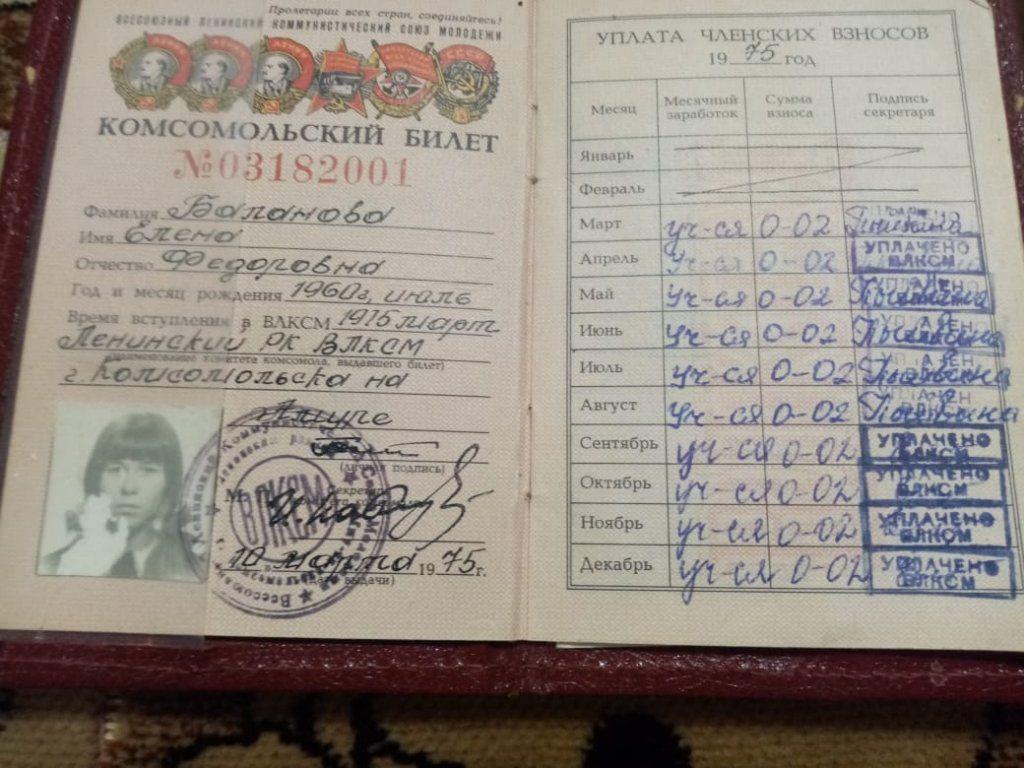 Пролетарии всех стран, соединяйтесь!
ВСЕСОЮЗНЫЙ ЛЕНИНСКИЙ КОММУНИСТИЧЕСКИЙ СОЮЗ МОЛОДЕЖИ
КОМСОМОЛЬСКИЙ БИЛЕТ
№03182001
Фамилия Баланова
Имя Елена
Отчество Федоровна
Год и месяц рождения 1960г, июль
Время вступления в ВЛКСМ 1975 март
Ленинский РК ВЛКСМ
(наименование комитета комсомола, выдавшего билет)
г. Комсомольска на
Амуре
(личная подпись)
ВЛКСМ
10 марта 1975 г.
(дата выдачи)
УПЛАТА ЧЛЕНСКИХ ВЗНОСОВ
1975 год
Месяц Месячный заработок Сумма взноса Подпись секретаря
Январь
Февраль
Март уч-ся 0-02
Апрель уч-ся 0-02 УПЛАЧЕНО ВЛКСМ
Май уч-ся 0-02
Июнь уч-ся 0-02
Июль уч-ся 0-02
Август уч-ся 0-02
Сентябрь уч-ся 0-02 УПЛАЧЕНО ВЛКСМ
Октябрь уч-ся 0-02 УПЛАЧЕНО ВЛКСМ
Ноябрь уч-ся 0-02 УПЛАЧЕНО ВЛКСМ
Декабрь уч-ся 0-02 УПЛАЧЕНО ВЛКСМ